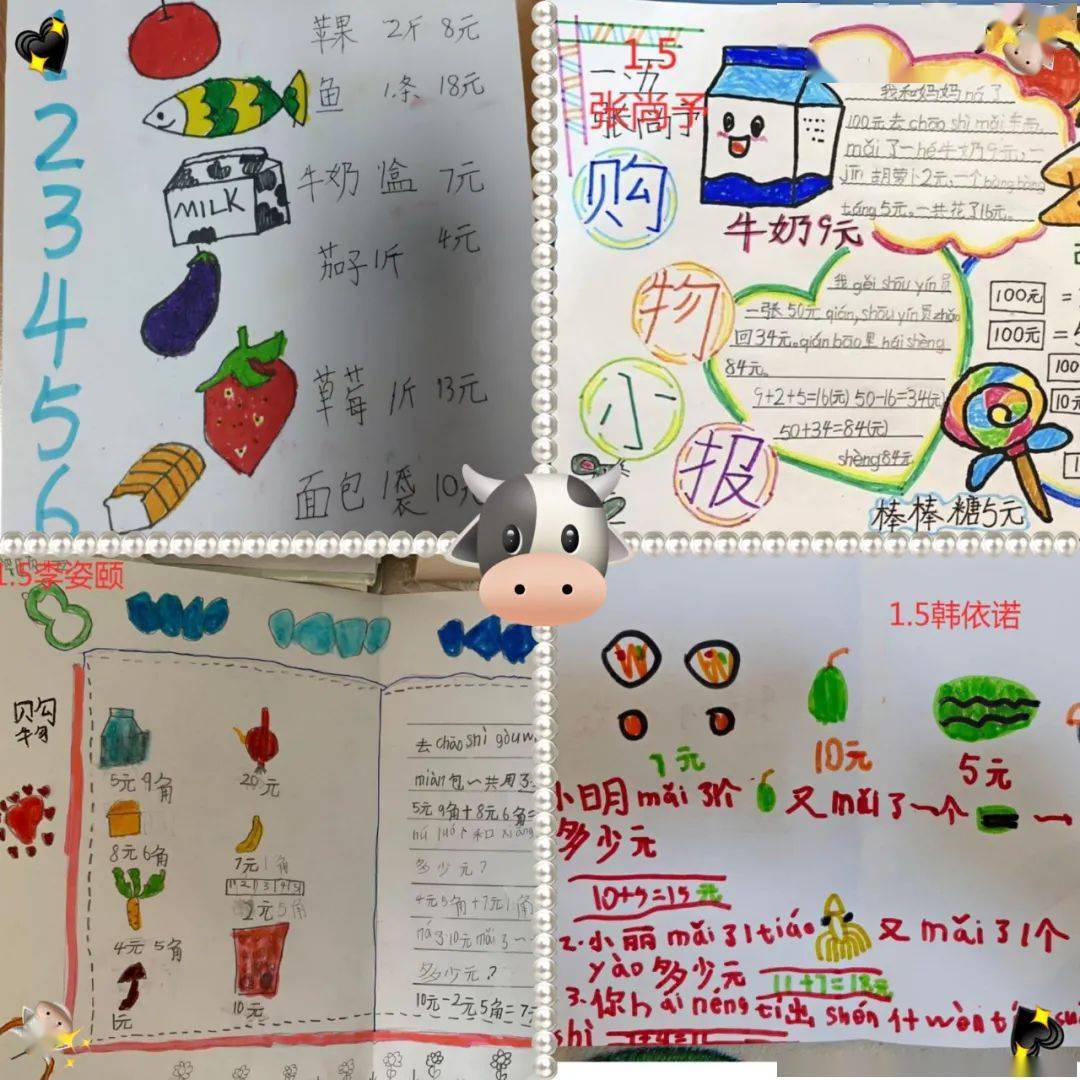 1
2
3
4
5
6
苹果 2斤 8元
鱼 1条 18元
MILK
牛奶 盒 7元
茄子1斤 4元
草莓 1斤 13元
面包 1袋 10元
1.5
张尚予
一.五
张尚予
购
物
小
报
牛奶9元
我和妈妈ná了
100元去chāo shì mǎi东西,
mǎi了一hé牛奶9元,一
jīn胡萝卜2元,一个bàng bàng
táng5元。一共花了16元。
我gěi shōu yín员
一张50元qián,shōu yín员zhǎo
回34元。qián bāo里hái shèng
84元。
9+2+5=16(元) 50-16=34(元)
50+34=84(元)
shèng84元
100元 =
100元 =
100
10元
棒棒糖5元
1.5李姿颐
购
物
5元9角
20元
8元6角
7元1角
2元5角
4元5角
1元
10元
去chāo shì gòu w
miàn包一共用3
5元9角+8元6角=
多少元?
4元5角+7元1角
ná 3 10元mǎi 3一
多少元?
10元-2元5角=7
1.5韩依诺
7元
10元
5元
小日月mǎi 3个 又mǎi 3一个
多少元
10+5=15元
2.小丽mǎi 3 1tiáo 又mǎi 3 1个
yào多少元 11+7=18元
3.你hái néng tí出shén 什wèn tí
shì